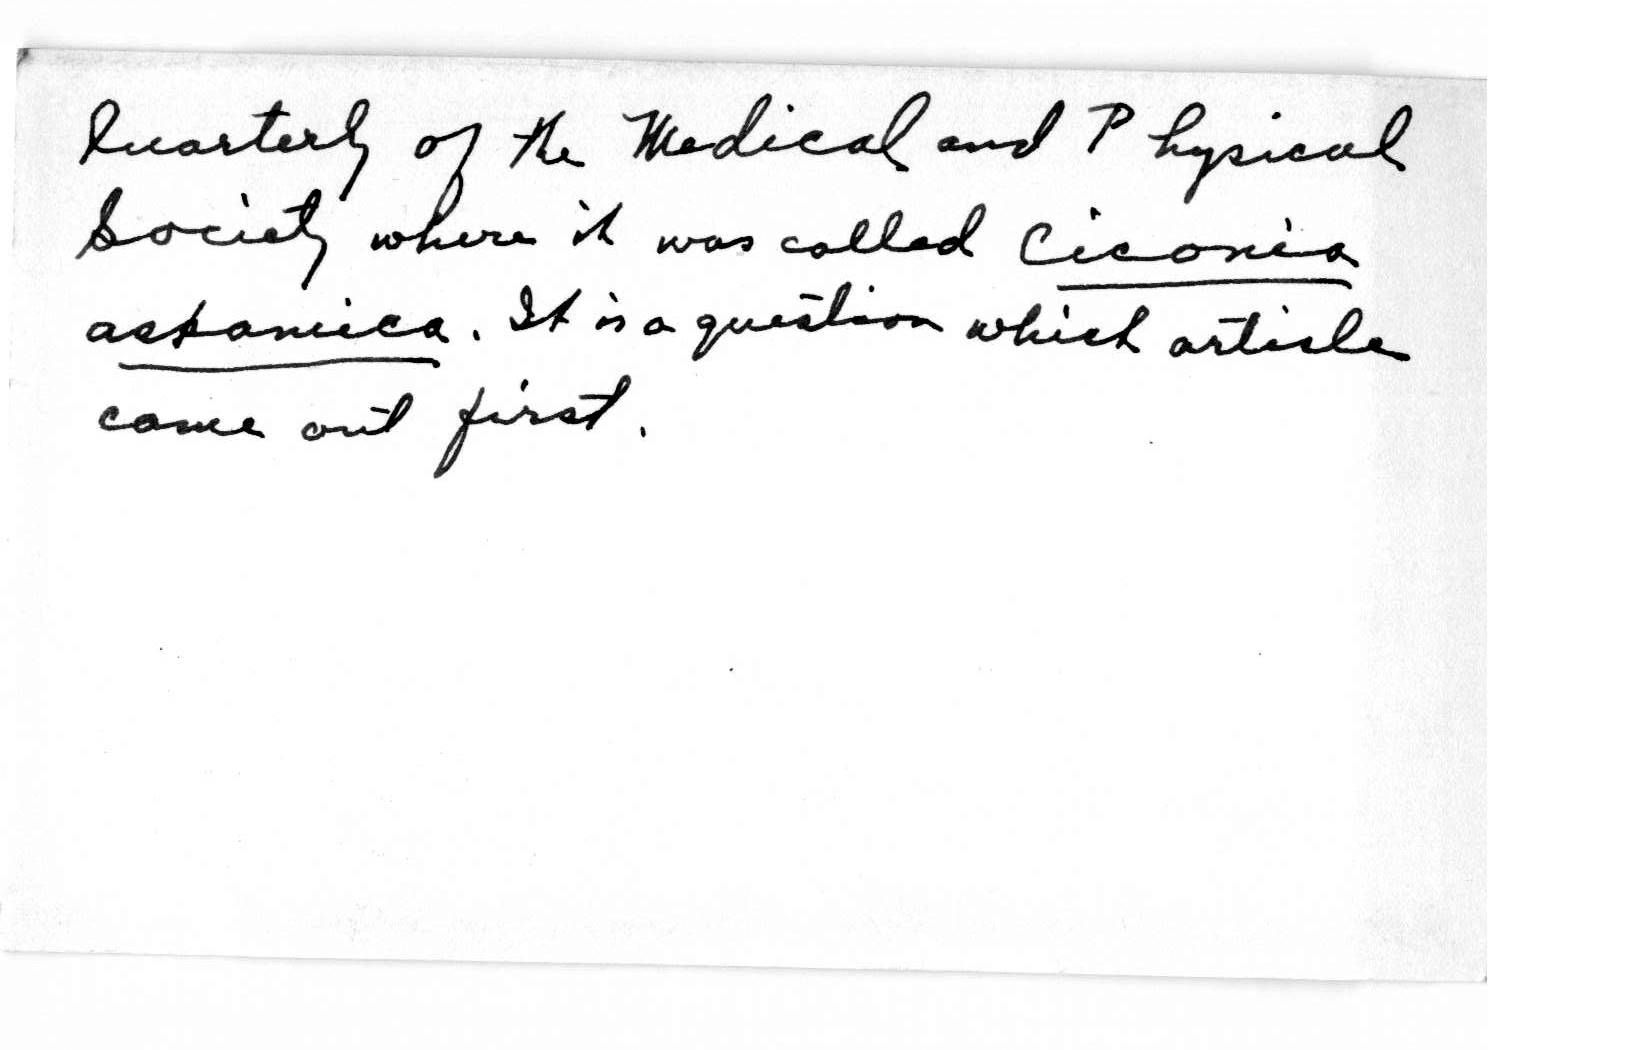 Quarterly of the Medical and Physical
Society where it was called Ciconia
asiamica. It is a question which article
came out first.